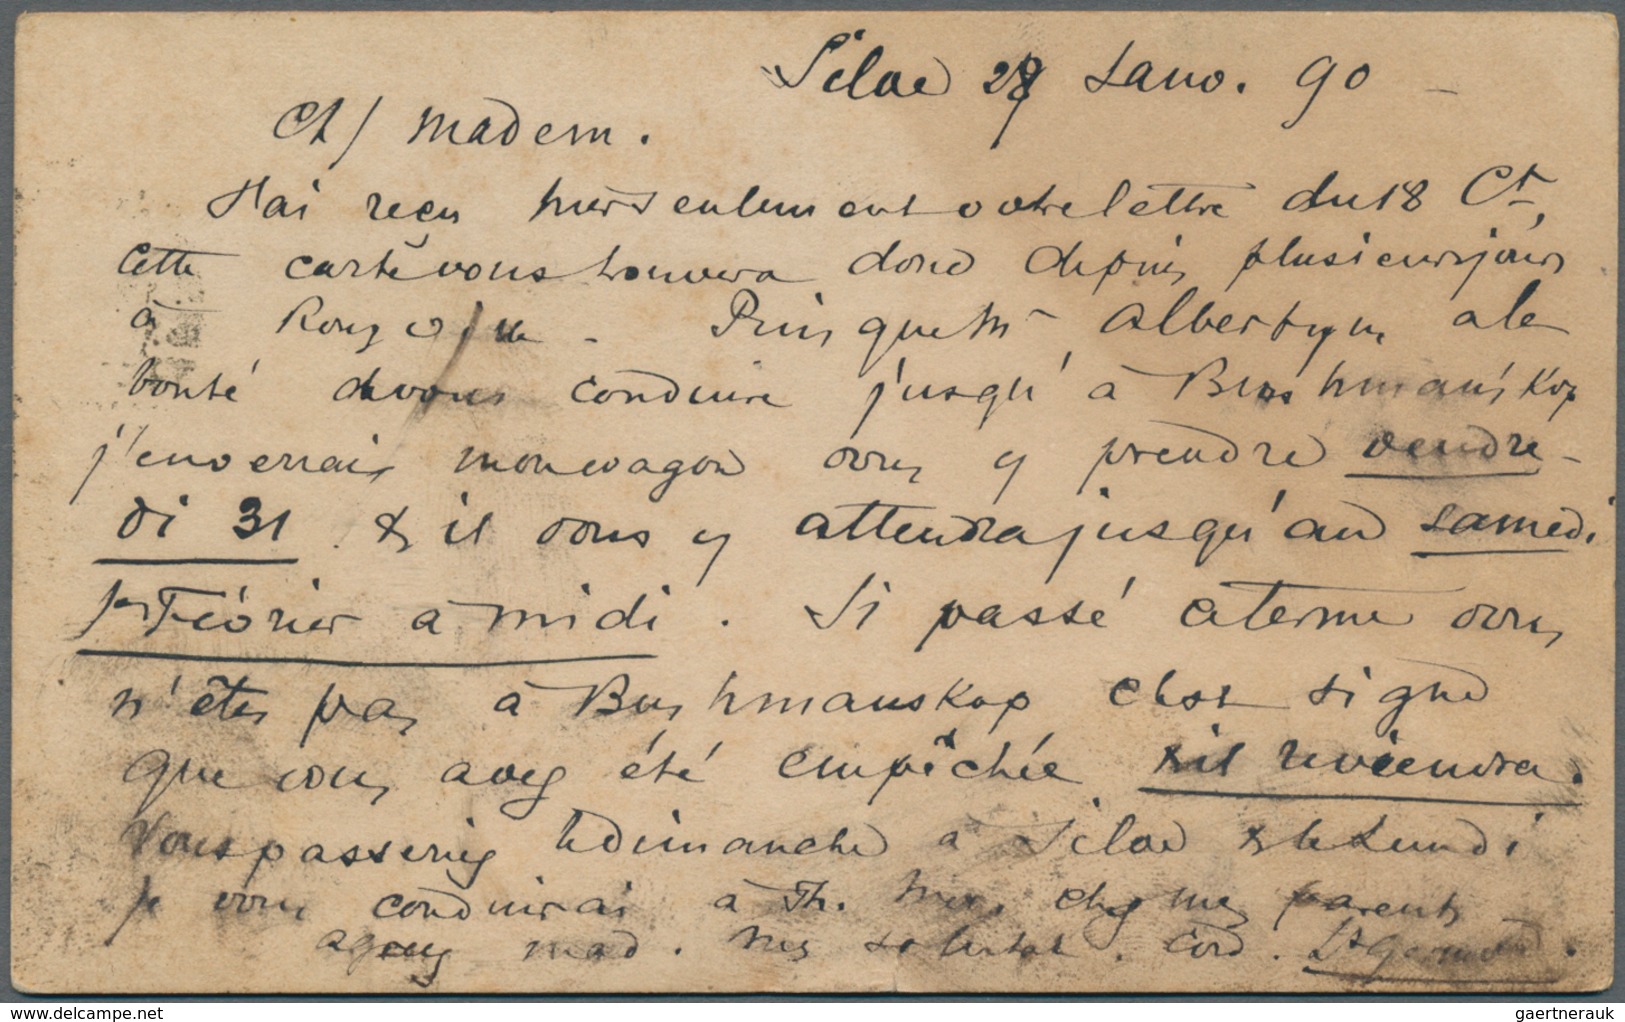 Siloé 28 Janv. 90 -
Ch/ madem.
J'ai reçu hier seulement votre lettre du 18 Ct,
Cette carte vous trouvera donc depuis plusieurs jours
à Rouxville. Puisque Mr Albertyn a la
bonté de vous conduire jusqu'à Bushman's Kop
j'enverrais mon wagon vous y prendre vendre-
di 31 & il vous y attendra jusqu'au samedi
1er Février à midi. Si passé ce terme vous
n'êtes pas à Bushmanskop c'est signe
que vous avez été empêchée & il reviendra.
Vous passeriez le dimanche à Siloé & le Lundi
je vous conduirai à Th. chez mes parents
agréez mad. mes salutat. cord.
delcampe.net
gaertnerauk